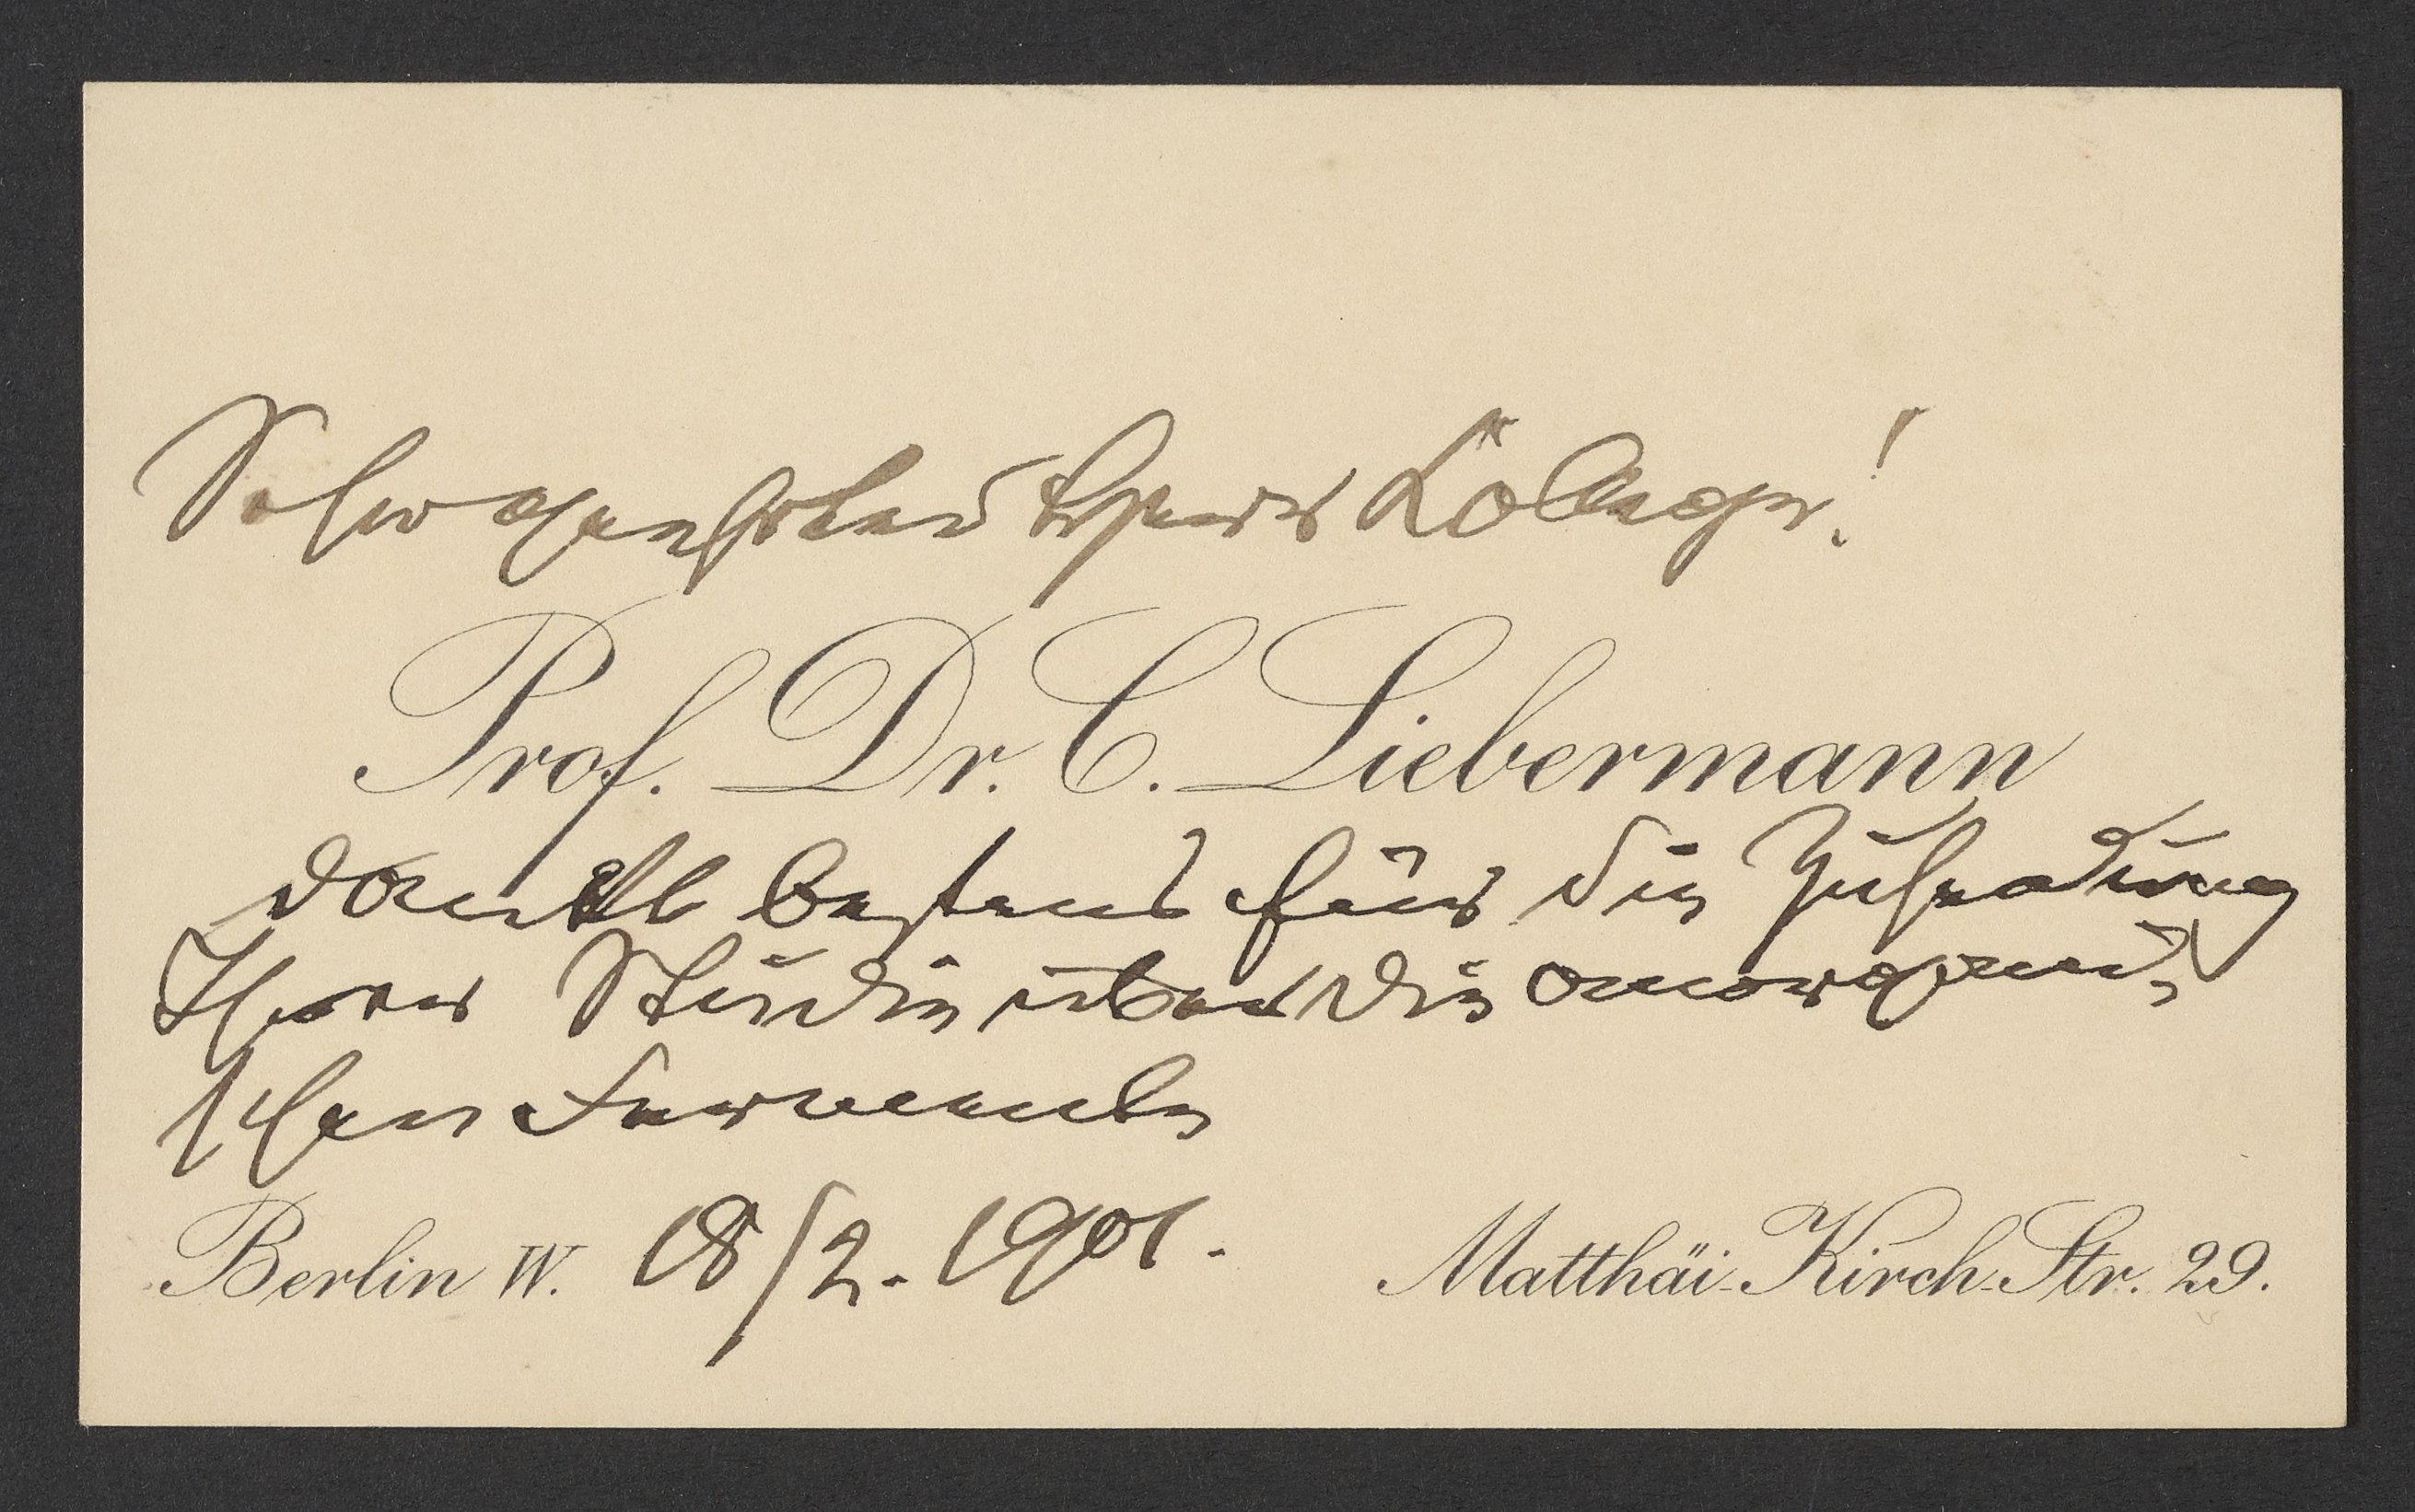 Sehr geehrter Herr College!
Prof. Dr. C. Liebermann
dankt bestens für die Zusendung
Ihrer Studie über die anorgani-
schen Fermente
Berlin W. 18/2. 1901. Matthäi-Kirch-Str. 29.